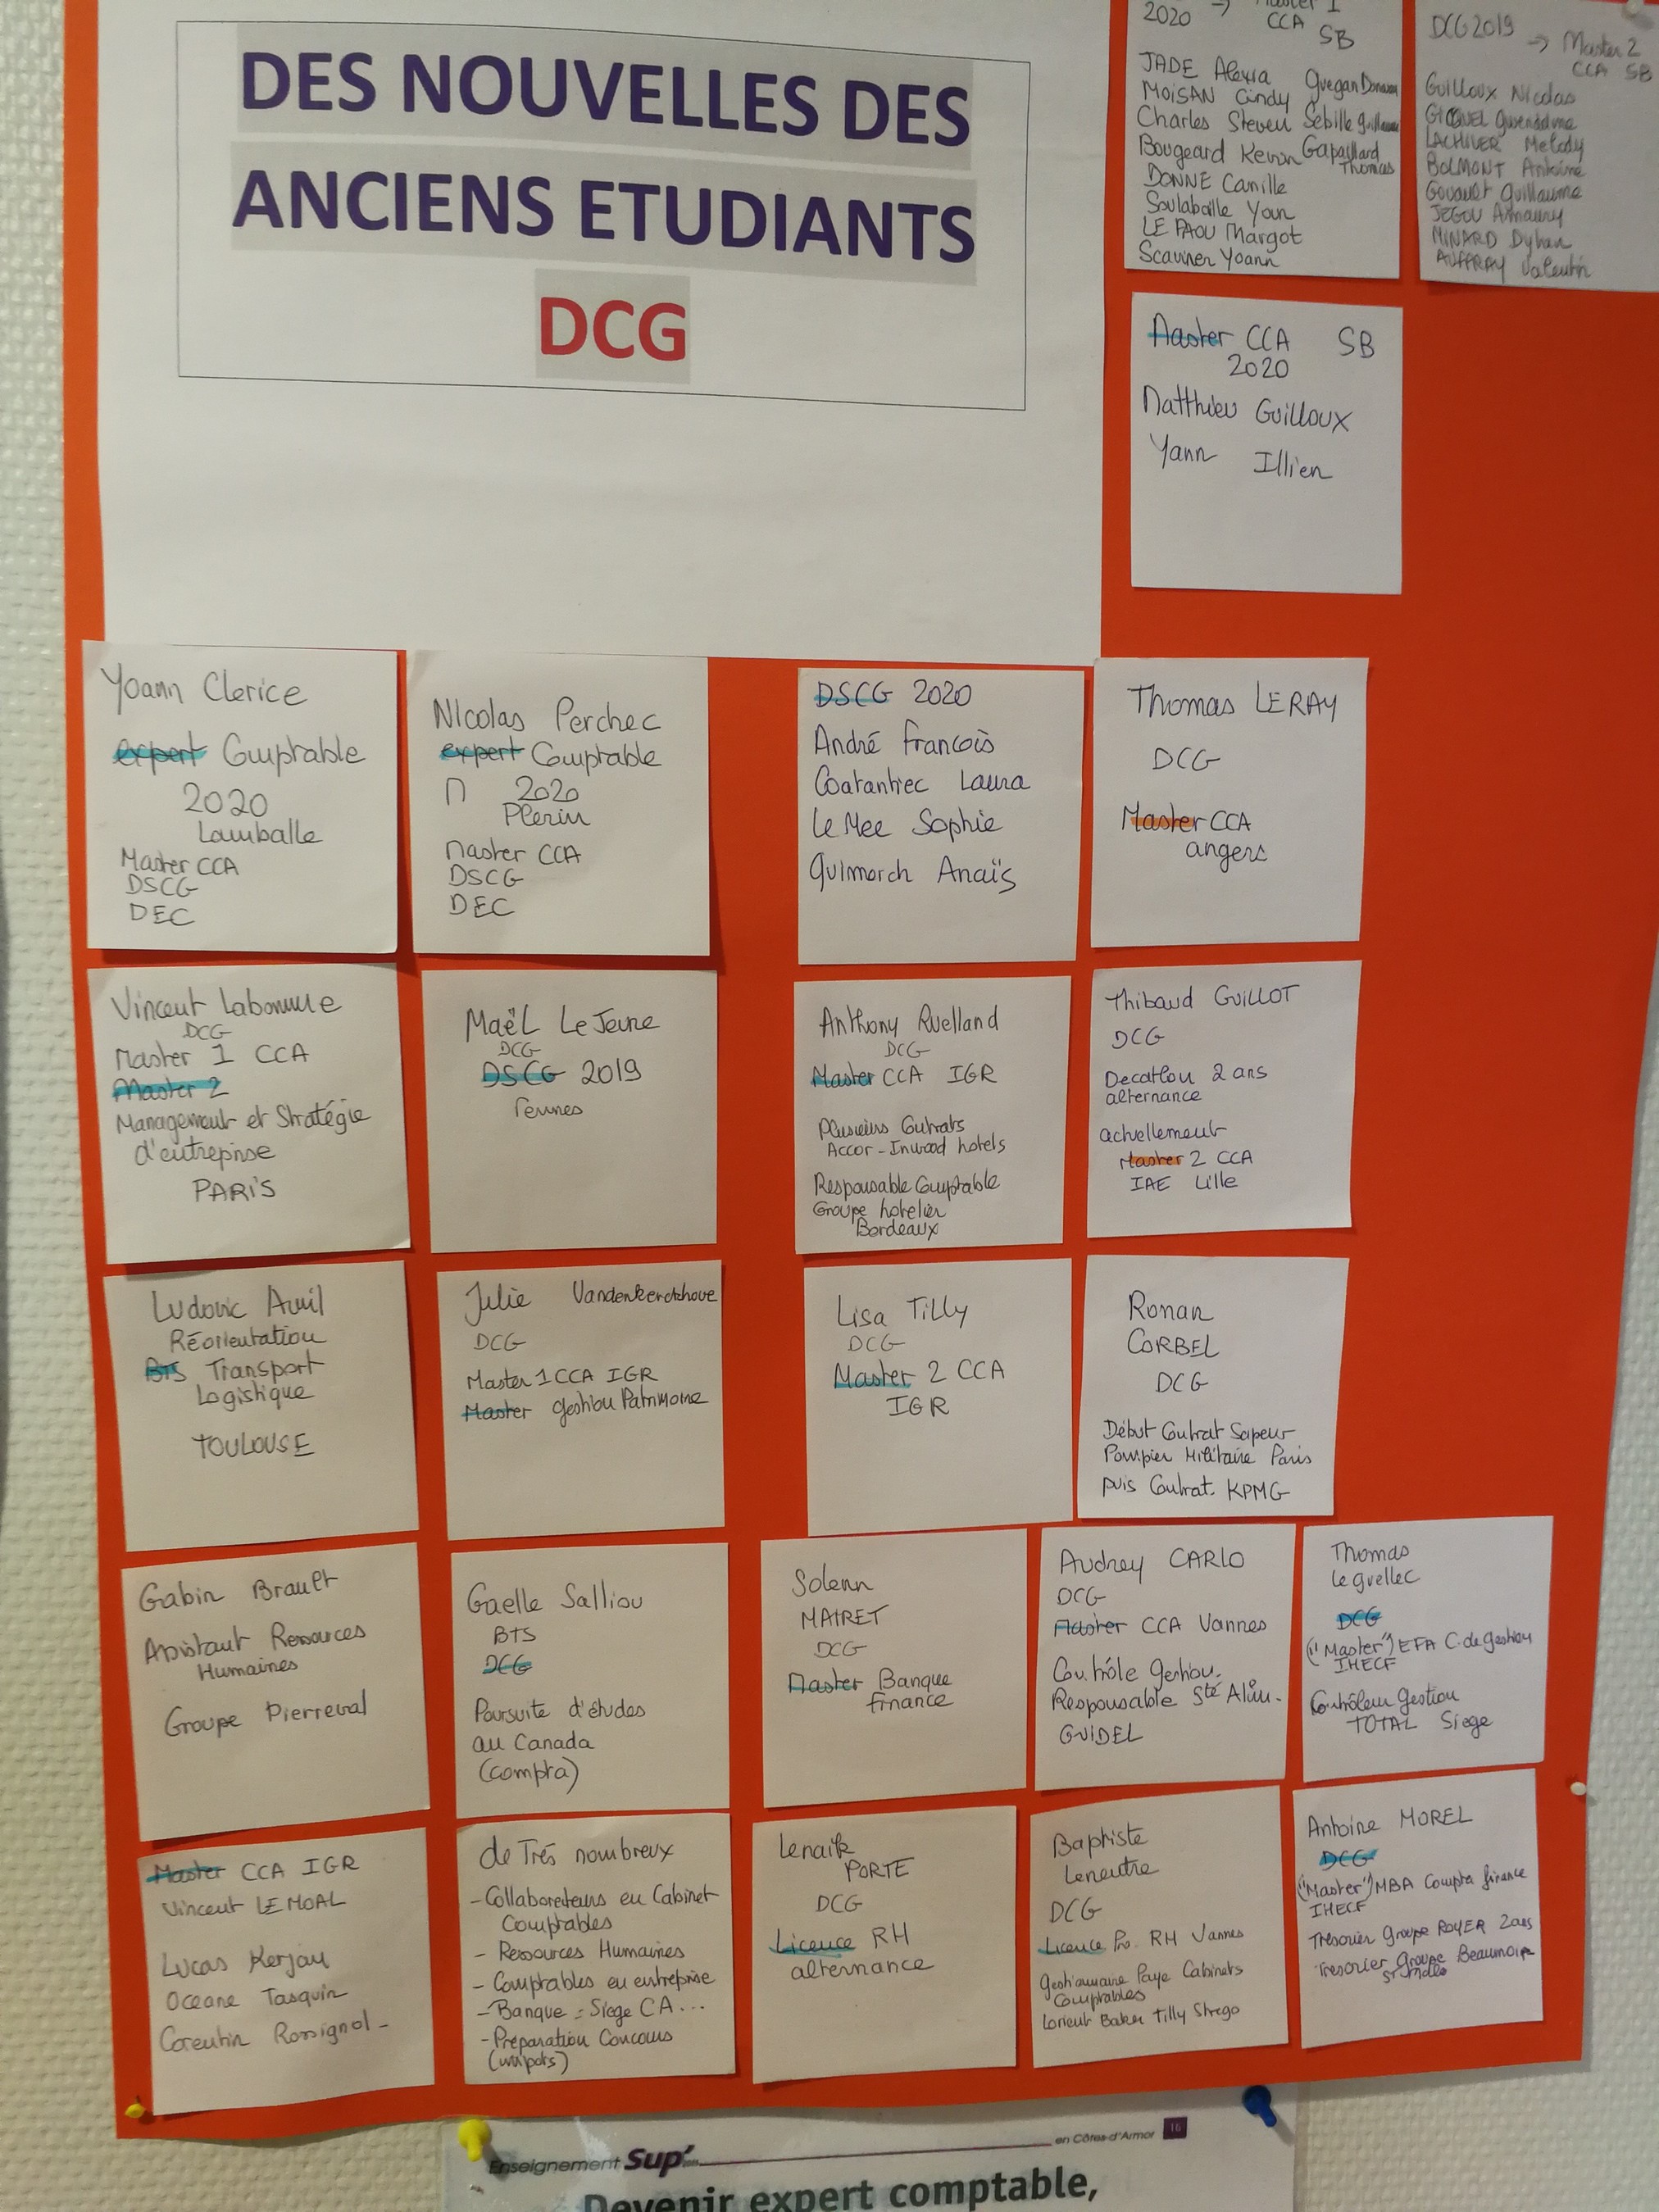 DES NOUVELLES DES
ANCIENS ETUDIANTS
DCG
2020 → Master 1
CCA
SB
JADE Alexia
MOISAN Cindy
Charles Steven
Bougeard Kevin
DONNE Camille
Soulabaille Youn
LE FAOU Margot
Scauner Yoann
Quegan Donovan
Sebille Guillaume
Gapaillard
Thomas
DCG 2019
→ Master 2
CCA SB
Guilloux Nicolas
GICQUEL Gwenaëlle
LACHIVER Melody
BOLMONT Antoine
Gouault Guillaume
JEGOU Amaury
MINARD Dylan
AUFFRAY Valentin
Master CCA SB
2020
Matthieu Guilloux
Yann Illien
Yoann Clerice
expert Comptable
2020
Lamballe
Master CCA
DSCG
DEC
Nicolas Perchec
expert Comptable
2020
Plerin
Master CCA
DSCG
DEC
DSCG 2020
André François
Coatantiec Laura
Le Mee Sophie
Quimerch Anaïs
Thomas LERAY
DCG
Master CCA
angers
Vincent Labonnue
DCG
Master 1 CCA
Master 2
Management et Stratégie
d'entreprise
PARIS
Maël Le Jeune
DCG
DSCG 2019
rennes
Anthony Ruelland
DCG
Master CCA IGR
Plusieurs Contrats
Accor - Inwood hotels
Responsable Comptable
Groupe hotelier
Bordeaux
Thibaud GUILLOT
DCG
Decathlon 2 ans
alternance
actuellement
Master 2 CCA
IAE Lille
Ludovic Avril
Réorientation
BTS Transport
Logistique
TOULOUSE
Julie Vandenkerckhove
DCG
Master 1 CCA IGR
Master gestion Patrimoine
Lisa Tilly
DCG
Master 2 CCA
IGR
Ronan
CORBEL
DCG
Début Contrat Sapeur
Pompier Militaire Paris
puis Contrat. KPMG
Gabin Brault
Assistant Ressources
Humaines
Groupe Pierreval
Gaelle Salliou
BTS
DCG
Poursuite d'études
au Canada
(compta)
Solenn
MAIRET
DCG
Master Banque
finance
Audrey CARLO
DCG
Master CCA Vannes
Contrôle gestion.
Responsable Sté Alim.
GUIDEL
Thomas
Le guellec
DCG
("Master") EFA C. de gestion
IHECF
Contrôleur gestion
TOTAL Siege
Master CCA IGR
Vincent LE MOAL
Lucas Kerjau
Oceane Tasquin
Corentin Rossignol -
de Très nombreux
- Collaborateurs en Cabinet
Comptables
- Ressources Humaines
- Comptables en entreprise
- Banque = Siege CA...
- Préparation Concours
(impots)
Lenaïk
PORTE
DCG
Licence RH
alternance
Baptiste
Leneutre
DCG
Licence Pro. RH Vannes
gestionnaire Paye Cabinets
Comptables
Lorient Baker Tilly Strego
Antoine MOREL
DCG
("Master") MBA Compta finance
IHECF
Trésorier groupe ROYER 2ans
Tresorier Groupe Beaumoir
St Malo
Enseignement Sup'
en Côtes-d'Armor 16
Devenir expert comptable,